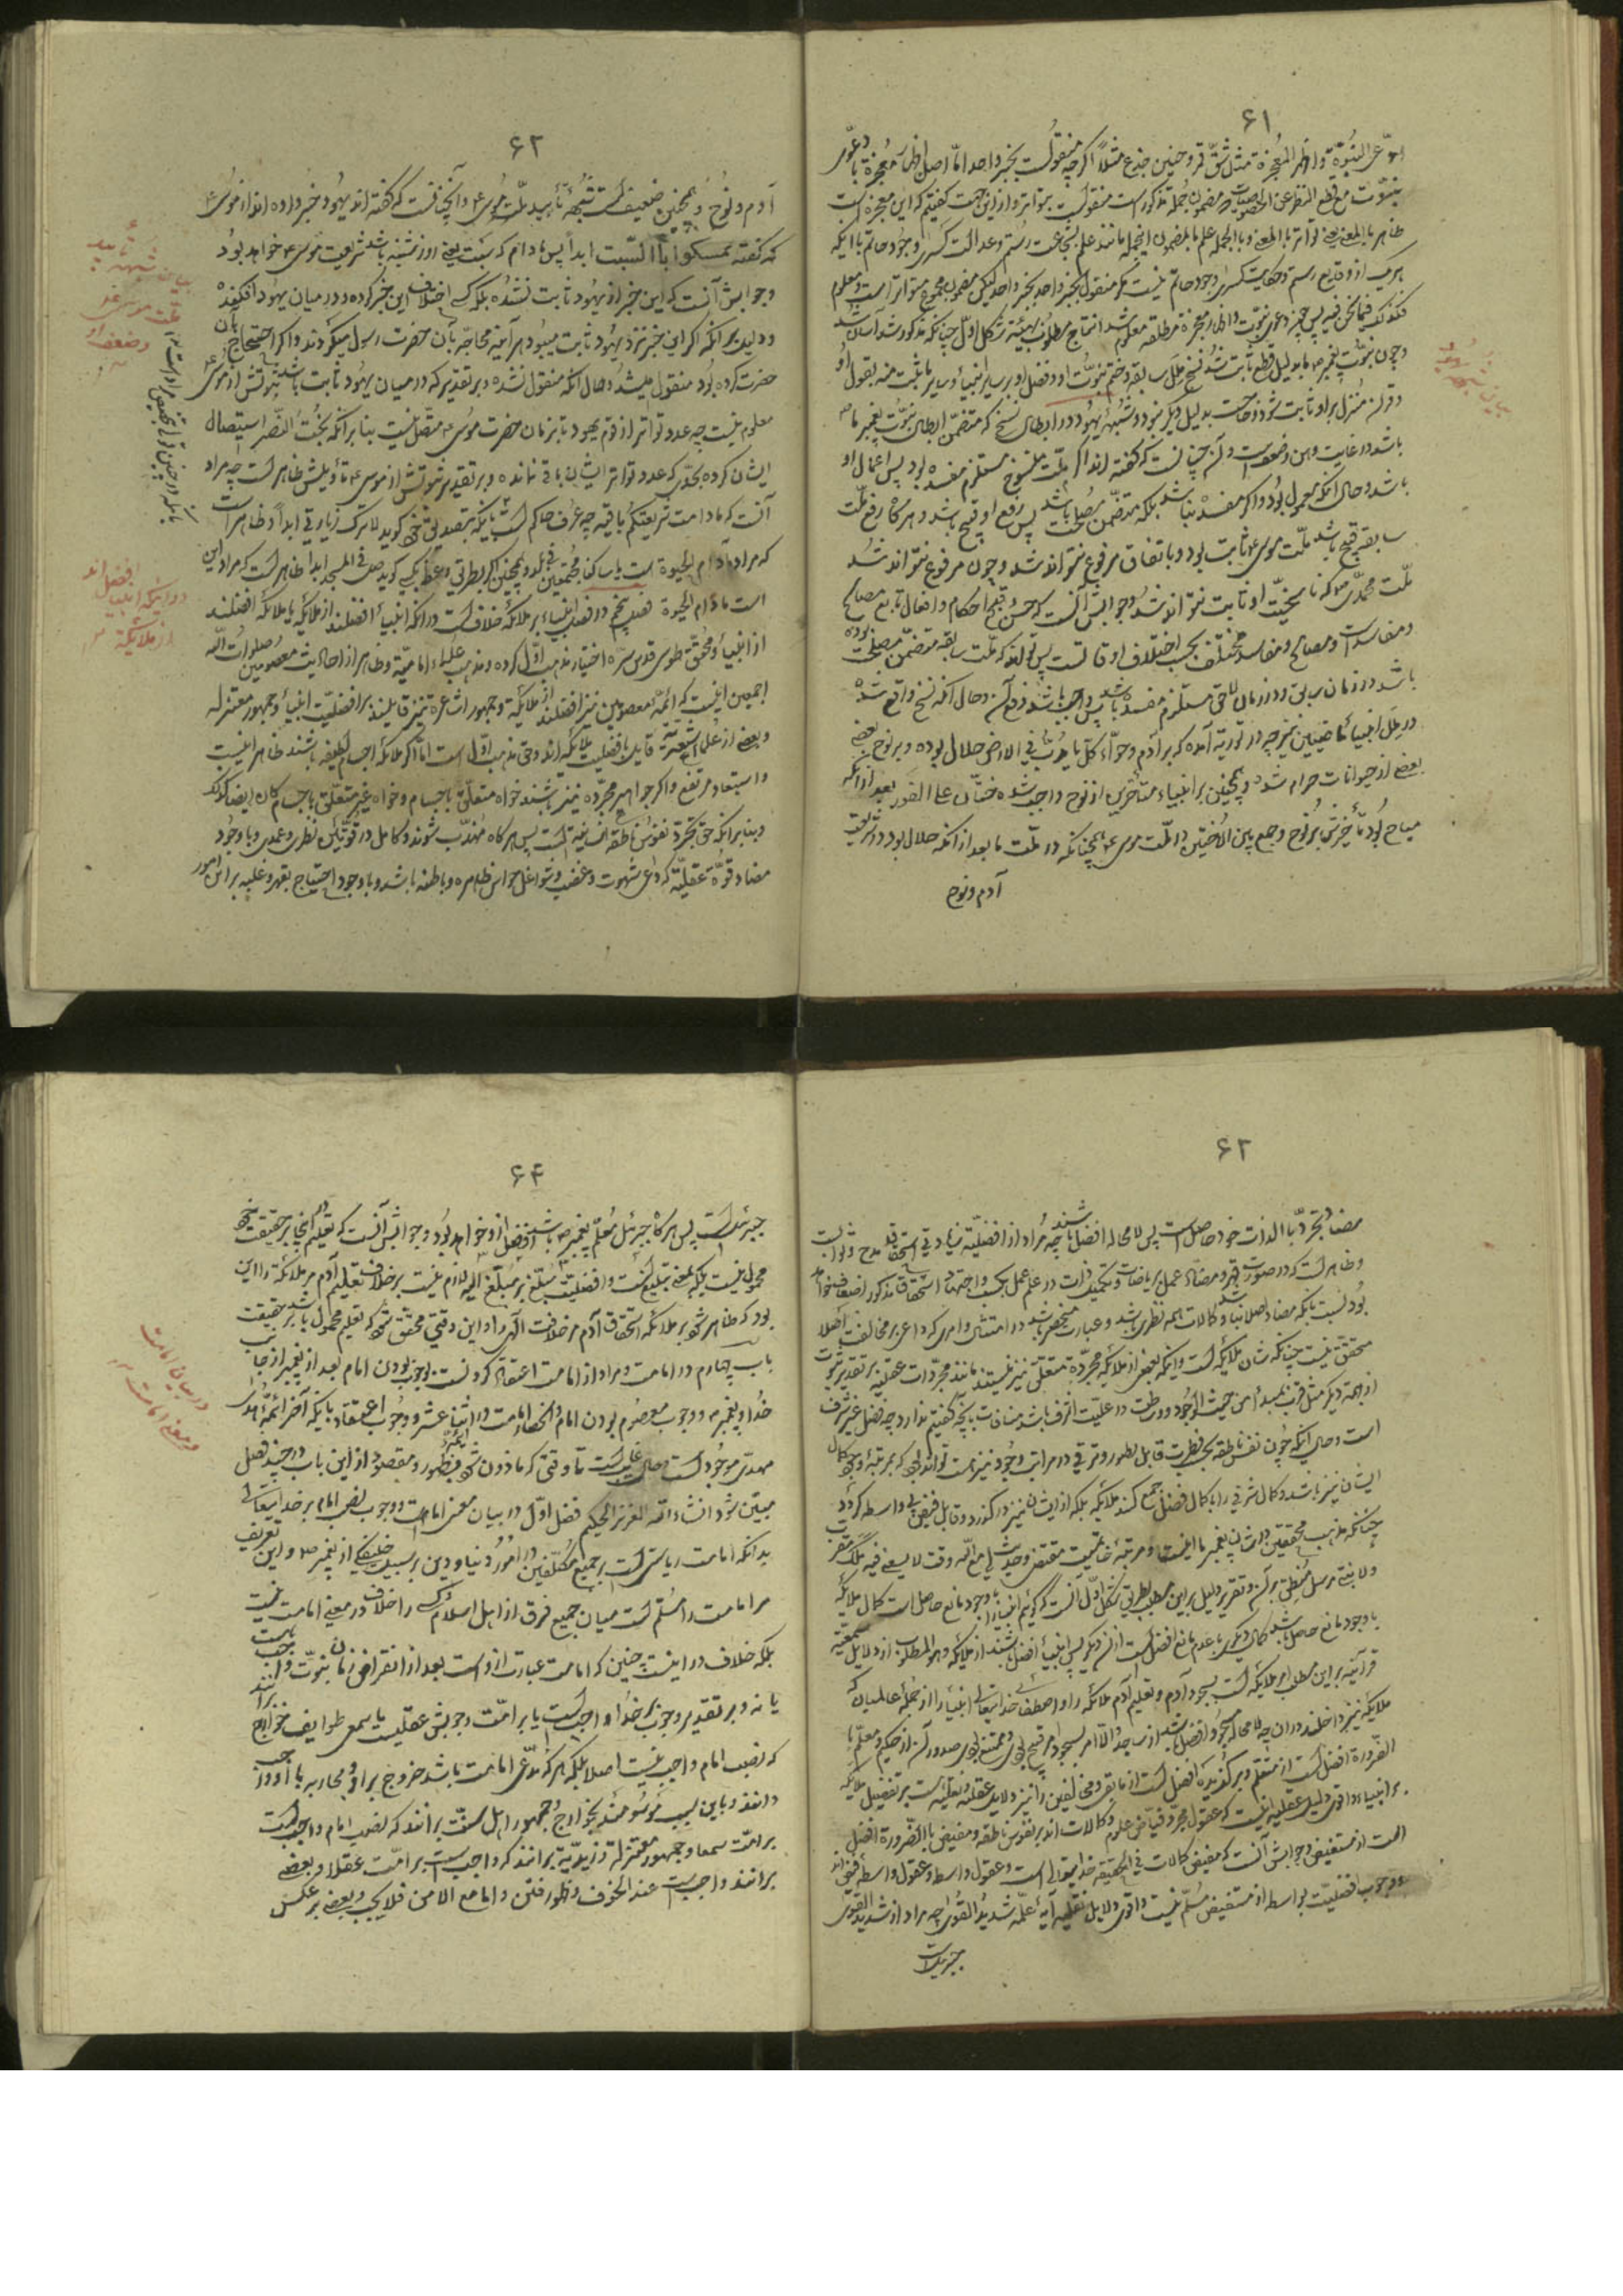 ۶۱
ادّعی النبوّة و اظهر المعجزة مثل شقّ قمر و حنین جذع مثلاً اکرچه منقولست بخبر واحد امّا اصل اظهار معجزه با دعوی
نبوّت مع قطع النظر عن الخصوصیات مضمون جمله مذکور است منقولست بتواتر و از این جهت کفتیم که این معجزه است
ظاهر بالمعنی یعنی تواتر بالمعنی و بالجمله علم بالمضمون اینجمله مانند علم بشجاعت رستم و عدالت کسری و وجود حاتم با اینکه
هر یک از وقایع رستم و حکایت کسری وجود حاتم نیست مکر منقول بخبر واحد بخبر واحد لیکن مضمون مجموع متواتر است و معلوم
فکذلک فیما نحن فیه پس چون دعوی نبوّت و اظهار معجزه مطلقه معلوم شد انتاج مطلوب بهیئة شکل اوّل چنانکه مذکور شد آسان شد
و چون نبوّت پیغمبر ما بدلیل قطع ثابت شد نسخ ملل سابقه و ختم نبوّت او و فضل او بر سایر انبیاء و سایر ما ثبت منه بقول او
و قرآن منزل بر او ثابت شود و حاجت بدلیل دیکر نبود و شبهه یهود در ابطال نسخ که متضمن ابطال نبوّت پیغمبر ما
باشد در غایت وهن و ضعفست و آن چنانست که کفته اند اکر ملّت منسوخ مستلزم مفسده بود پس اعمال او
باشد و حال آنکه معمول بود و اکر مفسده نباشد بلکه متضمن مصلحت باشد پس رفع او قبیح باشد و هرکاه رفع ملّت
سابقه قبیح باشد ملّت موسی ثابت بود و باتفاق مرفوع نتواند شد و چون مرفوع نتواند شد
ملّت محمّدی که ناسخیّت او ثابت نتواند شد و جوابش آنست که حسن و قبح احکام و افعال تابع مصالح
و مفاسد است و مصالح و مفاسد مختلف بحسب اختلاف اوقاتست پس تواند که ملّت سابقه متضمن مصلحت بوده
باشد در زمان سابق و در زمان لاحق مستلزم مفسده باشد پس واجب باشد رفع آن و حال آنکه نسخ واقع شده
در ملل انبیاء ماضیین نیز چه در توریة آمده که بر آدم و حوّاء کلّ ما یدبّ فی الارض حلال بوده و بر نوح بعضی
بعضی از حیوانات حرام شد و همچنین بر انبیاء متأخرین از نوح واجب شده ختان علی الفور بعد از آنکه
مباح بود تأخیرش بر نوح و جمع بین الاختین در ملّت موسی همچنانکه در ملّت ما بعد از آنکه حلال بود در شریعت
آدم و نوح
بیان شبهه یهود
۶۲
آدم و نوح و همچنین ضعیف است شبهه تأبید ملّت موسی و آنچنانست که کفته اند یهود خبر داده اند از موسی
که کفته تمسکوا بالسّبت ابداً پس مادام که سبت یعنی روز شنبه باشد شریعت موسی خواهد بود
و جوابش آنست که این خبر از یهود ثابت نشده بلکه اختلاف این خبر کرده و در میان یهود افکنده
و دلیل بر آنکه اکر این خبر نزد یهود ثابت میبود هر آینه محاجّه بآن حضرت رسول میکردند و اکر احتجاج بآن
حضرت کرده بود منقول میشد و حال آنکه منقول نشده و بر تقدیر که در میان یهود ثابت باشد ثبوتش از موسی
معلوم نیست چه عدد تواتر از قوم یهود تا بزمان حضرت موسی متصل نیست بنا بر آنکه بخت النّصر استیصال
ایشان کرده بحدّی که عدد تواتر ایشان باقی نمانده و بر تقدیر ثبوتش از موسی تأویلش ظاهر است چه مراد
آنست که مادامت شریعتکم باقیة چه عرف حاکم است باینکه
که مراد مادام الحیوة است
است مادام الحیوة فصل پنجم در افضلیت انبیاء بر ملائکه خلاف است در آنکه انبیاء افضلند از ملائکه یا ملائکه افضلند
از انبیاء و محقّق طوسی قدس سرّه اختیار مذهب اوّل کرده و مذهب علماء امامیّه و ظاهر از احادیث معصومین صلوات الله
اجمعین اینست که ائمّه معصومین نیز افضلند از ملائکه و جمهور اشاعره نیز قایلند بر افضلیّت انبیاء و جمهور معتزله
و بعضی از علماء اشعریّه قایل بافضلیت ملائکه اند و حق مذهب اوّل است امّا اکر ملائکه اجسام لطیفه باشند ظاهر اینست
و استبعاد مرتفع و اکر جواهر مجرّده نیز باشند خواه متعلّق باجسام و خواه غیر متعلّق باجسام کان ایضا کذلک
و بنا بر آنکه حق تجرّد نفوس ناطقه انسانیّه است پس هر کاه مهذّب شوند و کامل در قوّتین نظری و عملی و با وجود
مضاد قوّة عقلیّة که داعی شهوت و غضب و شواغل حواس ظاهره و باطنه باشد و با وجود احتیاج بقهر و غلبه بر این امور
بیان شبهه تأبید ملّت موسی و ضعف او
در اینکه انبیاء افضل اند از ملائکه
۶۳
مضاد تجرّد بالذات خود حاصل است پس لامحاله افضل باشند چه مراد از افضلیّة زیادتی استحقاق مدح و ثوابست
و ظاهر است که در صورت قهر و مضادّ عمل بریاضات و تکمیل ذات در علم عمل بکسب و اجتهاد استحقاق مذکور اضعاف خواهد
بود نسبت بآنکه مضاد اصلا نباشد و کمالات همه نظری باشد و عبارت منحصر باشد در امتثال و امری که داعی بر مخالفت اصلا
محقق نیست چنانکه شان ملائکه است و آنکه بعضی از ملائکه مجرّده متعلّق نیز نیستند مانند مجرّدات عقلیّه بر تقدیر ثبوت
از جهة دیکر مثل قرب بمبدأ من حیث الوجود و وساطت در علیّت اشرف باشد منافات بآنچه کفتیم ندارد چه فضل غیر شرف
است و حال آنکه چون نفس ناطقه بحسب فطرت قابل تطور و ترقی در مراتب وجود نیز هست تواند بود که بمرتبه وجود کمال
ایشان نیز باشد و کمال شرفی را با کمال فضل جمع کند ملائکه بلکه از ایشان نیز در کذرد و قابل فیض بی واسطه کردد
چنانکه مذهب محققین در شان پیغمبر ما اینست و مرتبه خاتمیّت مقتضی و حدیث لی مع الله وقت لا یسعنی فیه ملک مقرّب
ولا نبیّ مرسل منطبق بر آن و تقریر دلیل بر این مطلب بطریق شکل اوّل آنست که کوئیم انبیاء با وجود مانع حاصل است کمال ملائکه
با وجود مانع حاصل باشد کمال دیکری با عدم مانع افضل است از آن دیکر پس انبیاء افضل باشند از ملائکه و هو المطلوب از دلایل سمعیّه
قرآنیّه بر این مطلب امر ملائکه است بسجود آدم و تعلیم آدم ملائکه را و اصطفاء خدایتعالی انبیاء را از جمله عالمیان که
ملائکه نیز داخلند در آن چه لامحاله مسجود افضل باشد از ساجد و الّا امر بسجود او قبیح بودی و ممتنع بودی صدور آن از حکیم و معلّم با
الضرورة افضل است از متعلم و برکزیده افضل است از مابقی و مخالفین را نیز دلایل عقلیّه و نقلیّه است بر تفضیل ملائکه
بر انبیاء و اقوی دلیل عقلیّه اینست که عقول مجرّد فیّاض علوم و کمالات اند بر نفوس ناطقه و مفیض بالضرورة افضل
است از مستفیض و جوابش آنست که مفیض کمالات فی الحقیقه خدایتعالی است و عقول واسطه و عقول واسطه فیض اند
و وجوب افضلیّت بواسطه از مستفیض مسلّم نیست و اقوی دلایل نقلیّه آیة علّمه شدید القوی چه مراد از شدید القوی
جبرئیلست
۶۴
جبرئیلست پس هر کاه جبرئیل معلّم پیغمبر باشد افضل از او خواهد بود و جوابش آنست که تعلیم در اینجا بر حقیقت خود
محمول نیست بلکه بمعنی تبلیغ است و افضلیّت مبلّغ بر مبلّغ الیه لازم نیست بر خلاف تعلیم آدم مر ملائکه را این
بود که ظاهر شود بر ملائکه استحقاق آدم مر خلافت الهی را و این وقتی محقق شود که تعلیم محمول باشد بر حقیقت
باب چهارم در امامت و مراد از امامت اعتقاد کردنست بوجوب بودن امام بعد از پیغمبر از جانب
خدا و پیغمبر و وجوب معصوم بودن امام و انحصار امامت در اثنا عشر و وجوب اعتقاد باینکه آخر ائمّه هدی
مهدی موجود است و حال غایبست تا وقتی که ماذون شود بظهور و مقصود از این باب در چند فصل
مبیّن شود انشاء الله العزیز الحکیم فصل اوّل در بیان معنی امامت و وجوب نصب امام بر خدایتعالی
بدانکه امامت ریاستی است بر جمیع مکلّفین در امور دنیا و دین بر سبیل خلیفکی از پیغمبر و این تعریف
مر امامت را مسلّم است میان جمیع فرق از اهل اسلام و کسی را خلاف در معنی امامت نیست
بلکه خلاف در اینست چنین که امامت عبارت از اوست بعد از انقراض زمان نبوّت واجب است
یا نه و بر تقدیر وجوب بر خدا واجب است یا بر امّت وجوبش عقلیست یا سمعی طوایف خوارج برآنند
که نصب امام واجب نیست اصلا بلکه هر که مدّعی امامت باشد خروج بر او و محاربه با او واجب
دانند و باین سبب موسومند بخوارج و جمهور اهل سنّت برآنند که نصب امام واجب است
بر امّت سمعا و جمهور معتزله و زیدیّه برآنند که واجب است بر امّت عقلا و بعضی
برآنند واجب است عند الخوف و ظهور فتن و اما مع الامن فلا یجب و بعضی بر عکس
در بیان امامت و معنی امامت